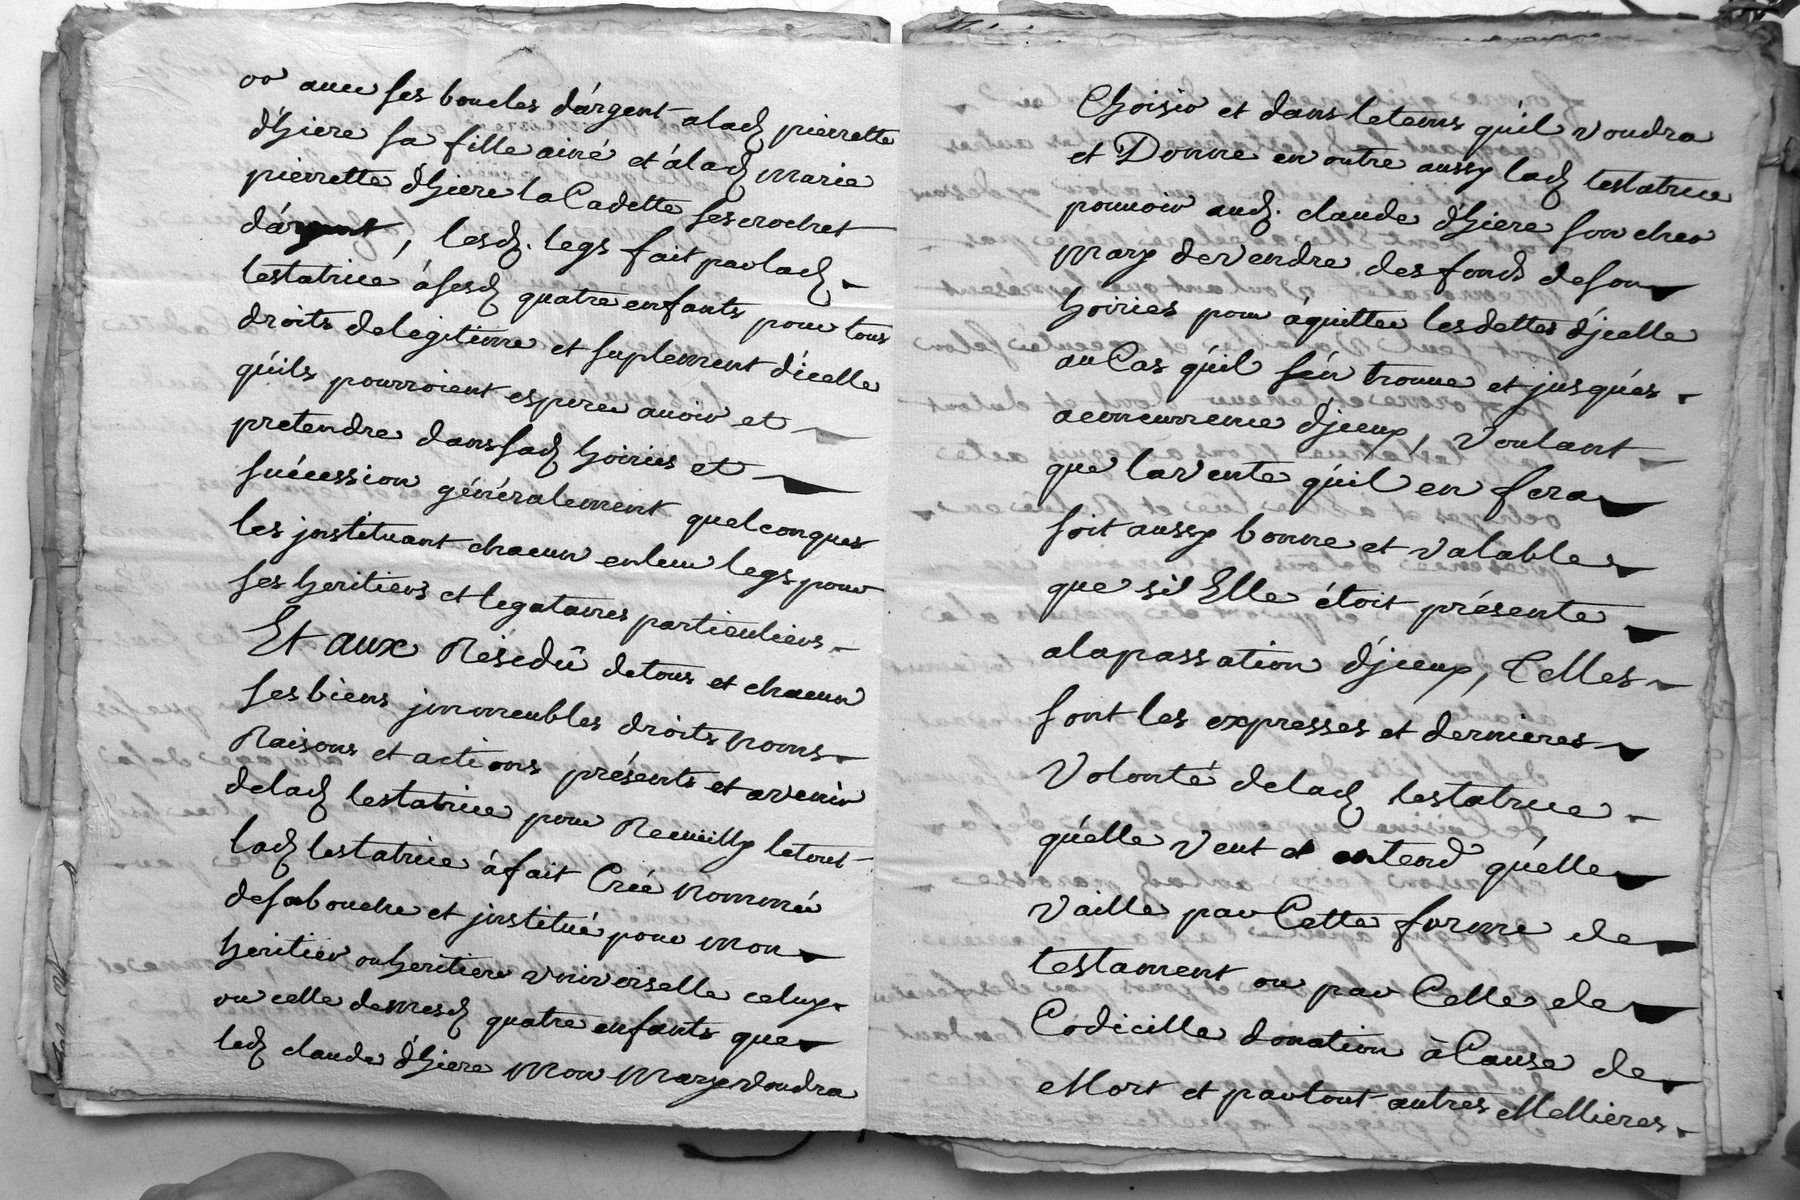 or avec ses boucles d'argent a lad. pierrette
d'hiere sa fille ainé et á lad. marie
pierrette d'hiere la Cadette ses crochet
d'argent, lesd. legs fait par lad.
testatrice á sesd. quatre enfants pour tous
droits de legitime et suplement d'icelle
qu'ils pourroient esperer avoir et
pretendre dans sad. hoiries et
succession généralement quelconques
les jnstituant chacun en leur legs pour
ses heritiers et legataires particuliers
Et aux Résidû de tous et chacun
ses biens jmmeubles droits noms
Raisons et actions présents et avenir
de lad. testatrice pour Recueilly le tout
lad. testatrice á fait Créé nommée
de sa bouche et jnstitué pour mon
heritier ou heritiere universelle celuy
ou celle de mesd. quatre enfants que
led. claude d'hiere mon mary voudra
Choisir et dans le tems qu'il voudra
et Donne en outre aussy lad. testatrice
pouvoir aud. claude d'hiere son cher
mary de vendre des fonds de son
hoiries pour áquitter les dettes d'jcelle
au Cas qu'il s'en trouve et jusqu'es
a concurrence d'jceux, voulant
que la vente qu'il en fera
soit aussy bonne et valable
que si Elle étoit présente
a la passation d'jceux, Celles
sont les expresses et dernieres
Volonté de lad. testatrice
qu'elle veut et entend qu'elle
vaille par Cette forme de
testament ou par Celle de
Codicille donation á Cause de
Mort et par tout autres Mellieres